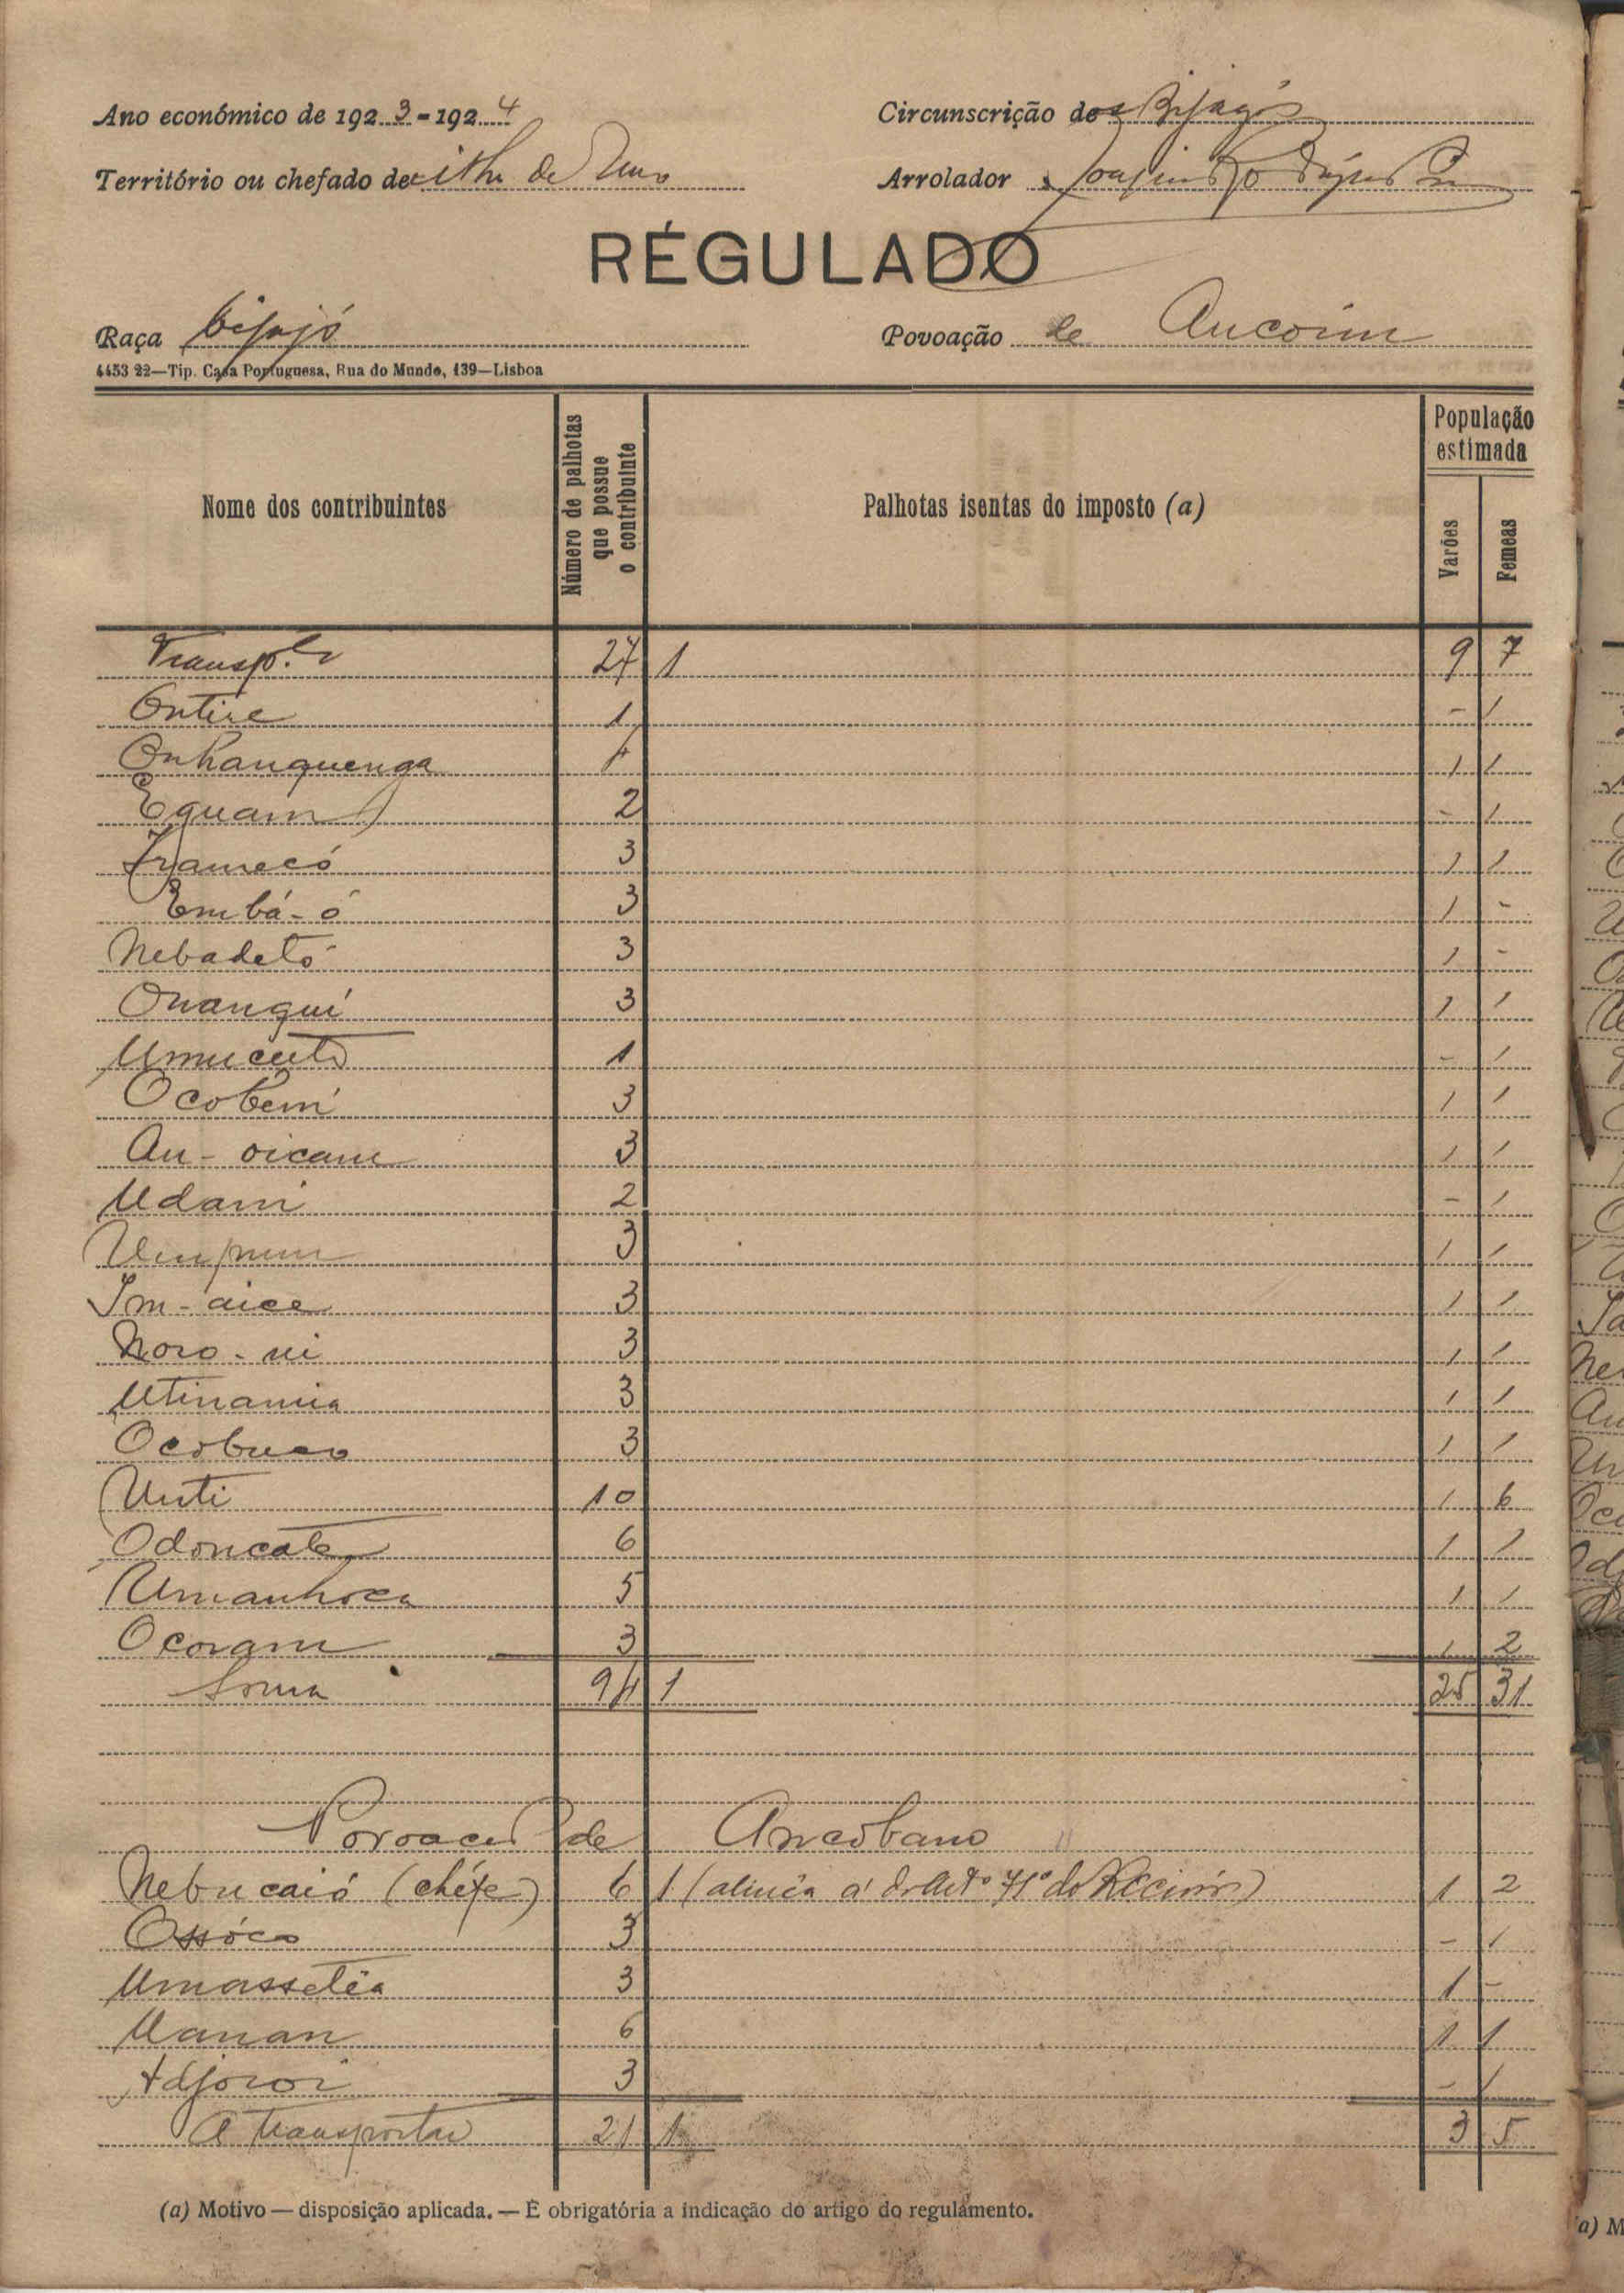 Ano económico de 1923-1924
Circunscrição dos Bijagós
Território ou chefado de ilha de Uno
Arrolador Joaquim
RÉGULADO
Raça bijajó
Povoação de Ancoim
4453 22—Tip. Casa Portuguesa, Rua do Mundo, 139—Lisboa
Nome dos contribuintes
Número de palhotas que possue o contribuinte
Palhotas isentas do imposto (a)
População estimada
Varões
Femeas
Transp.te 27 1 9 7
Ontire 1 - 1
Onhanquenga 4 1 1
Eguam 2 - 1
3 1 1
Embá-ó 3 1 -
Nebadetó 3 1 -
Onanqui 3 1 1
Umucuto 1 - 1
Ocobem 3 1 1
An-oicane 3 1 1
Udani 2 - 1
3 1 1
Im-aice 3 1 1
Noro-ni 3 1 1
Utinamia 3 1 1
Ocobuco 3 1 1
Unti 10 1 6
Odoncate 6 1 1
Umanhoca 5 1 1
Ocoram 3 1 2
Soma 94 1 25 31
Povoação de Ancobano
Nebucaió (chéfe) 6 1 (alinêa a' do Artº 71º do 1 2
Ossóco 3 - 1
Umassetêa 3 1 -
Uanan 6 1 1
3 - 1
A transportar 21 1 3 5
(a) Motivo — disposição aplicada. — É obrigatória a indicação do artigo do regulamento.